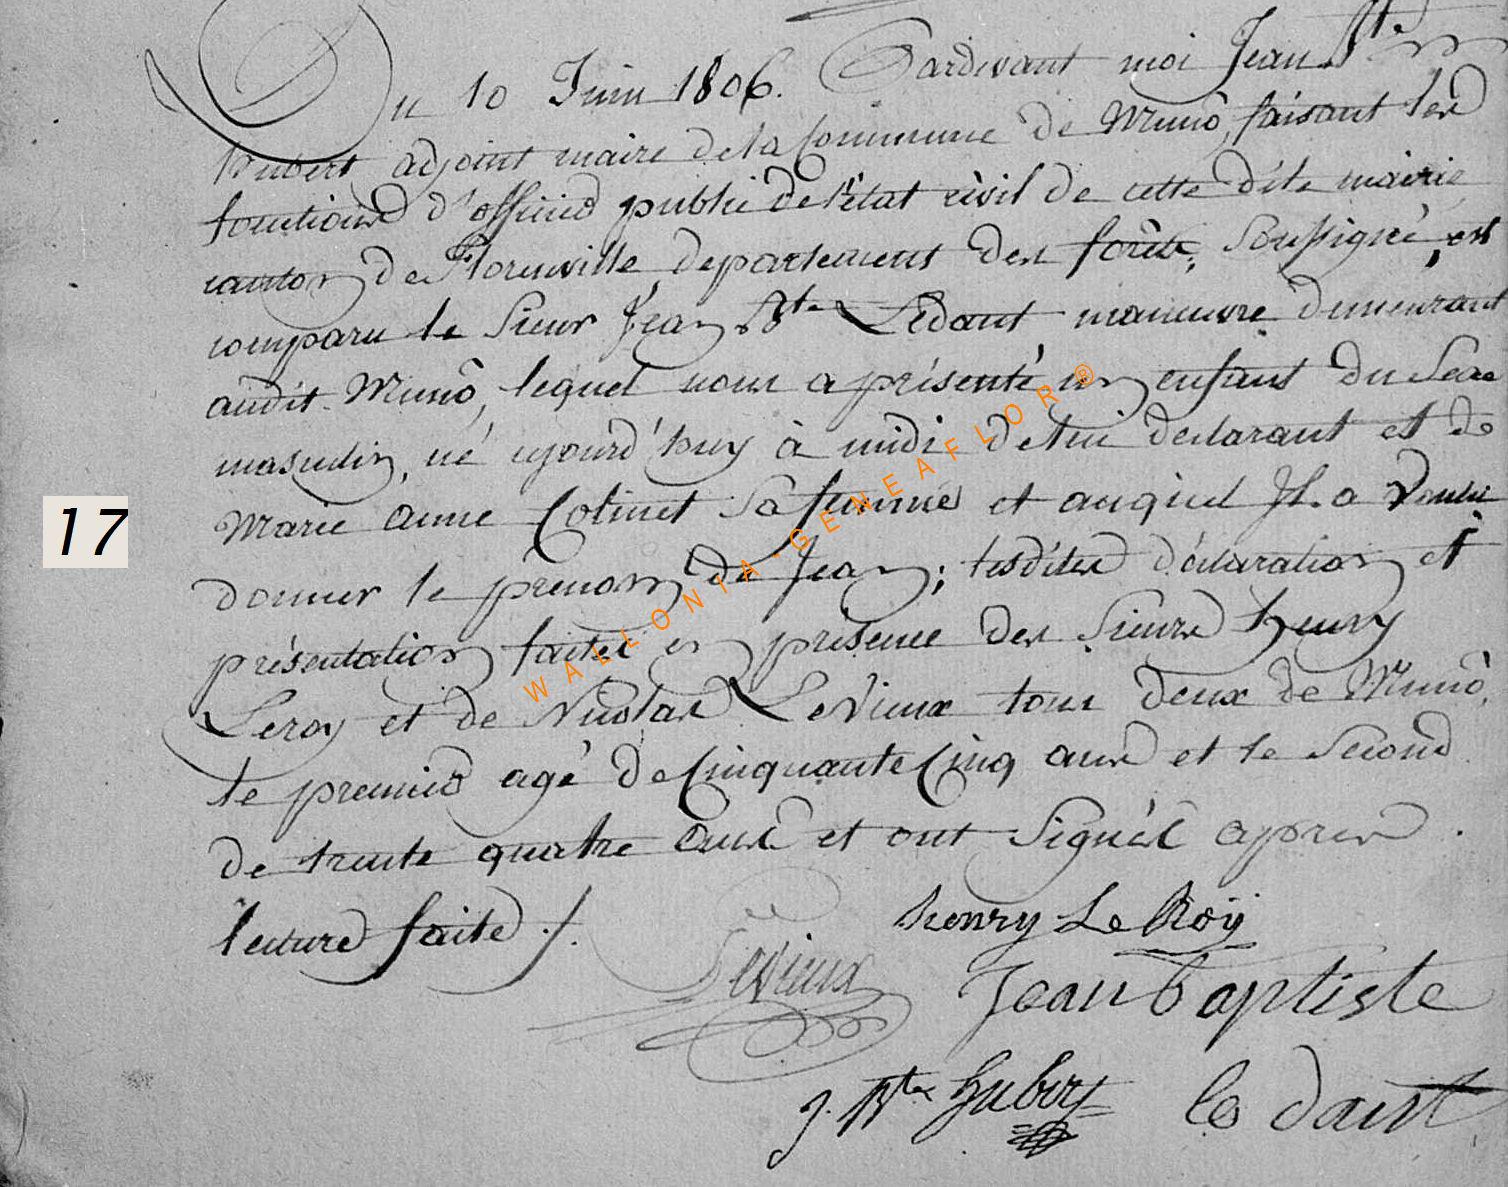 Du 10 Juin 1806. Pardevant moi Jean Bte
hubert, adjoint maire de la Commune de Munô, faisant les
fonctions d'officier public de l'état civil de cette dite mairie
canton de Florenville, departement des forêts, soussigné, est
comparu le Sieur Jean Bte Ledant manuvre demeurant
audit Munô, lequel nous a présenté un enfant du Sexe
masculin, né ajourd'huy à midi de lui declarant et de
17
Marie anne Colinet sa femme et auquel Il a voulu
donner le prenom de Jean; lesdites déclaration et
présentation faites en presence des Sieurs henry
Leroy et de Nicolas LeVieux tous deux de Munô,
le premier agé de Cinquante Cinq ans et le Second
de trente quatre ans et ont Signés apres
lecture faite ./.
henry Le Roÿ
Levieux
Jean baptiste
J. Bte Hubert le dant
WALLONIA-GENEAFLOR®